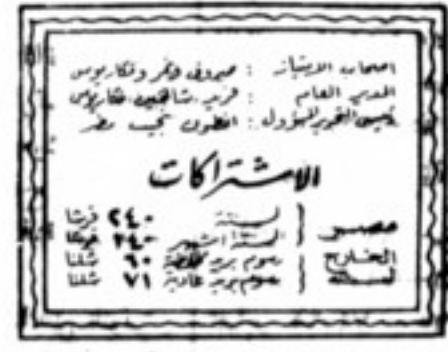 اصحاب الامتياز : صروف ونمر ومكاريوس
المدير العام : فريد شاهين مكاريوس
رئيس التحرير المسؤول : انطون نجيب مطر
الاشتراكات
مصر لسنة ٢٤٠ قرشا
لستة اشهر قرشا
الخارج رسوم بريد ٦٠ شلنا
لسنة رسوم بريد عادية ٧١ شلنا